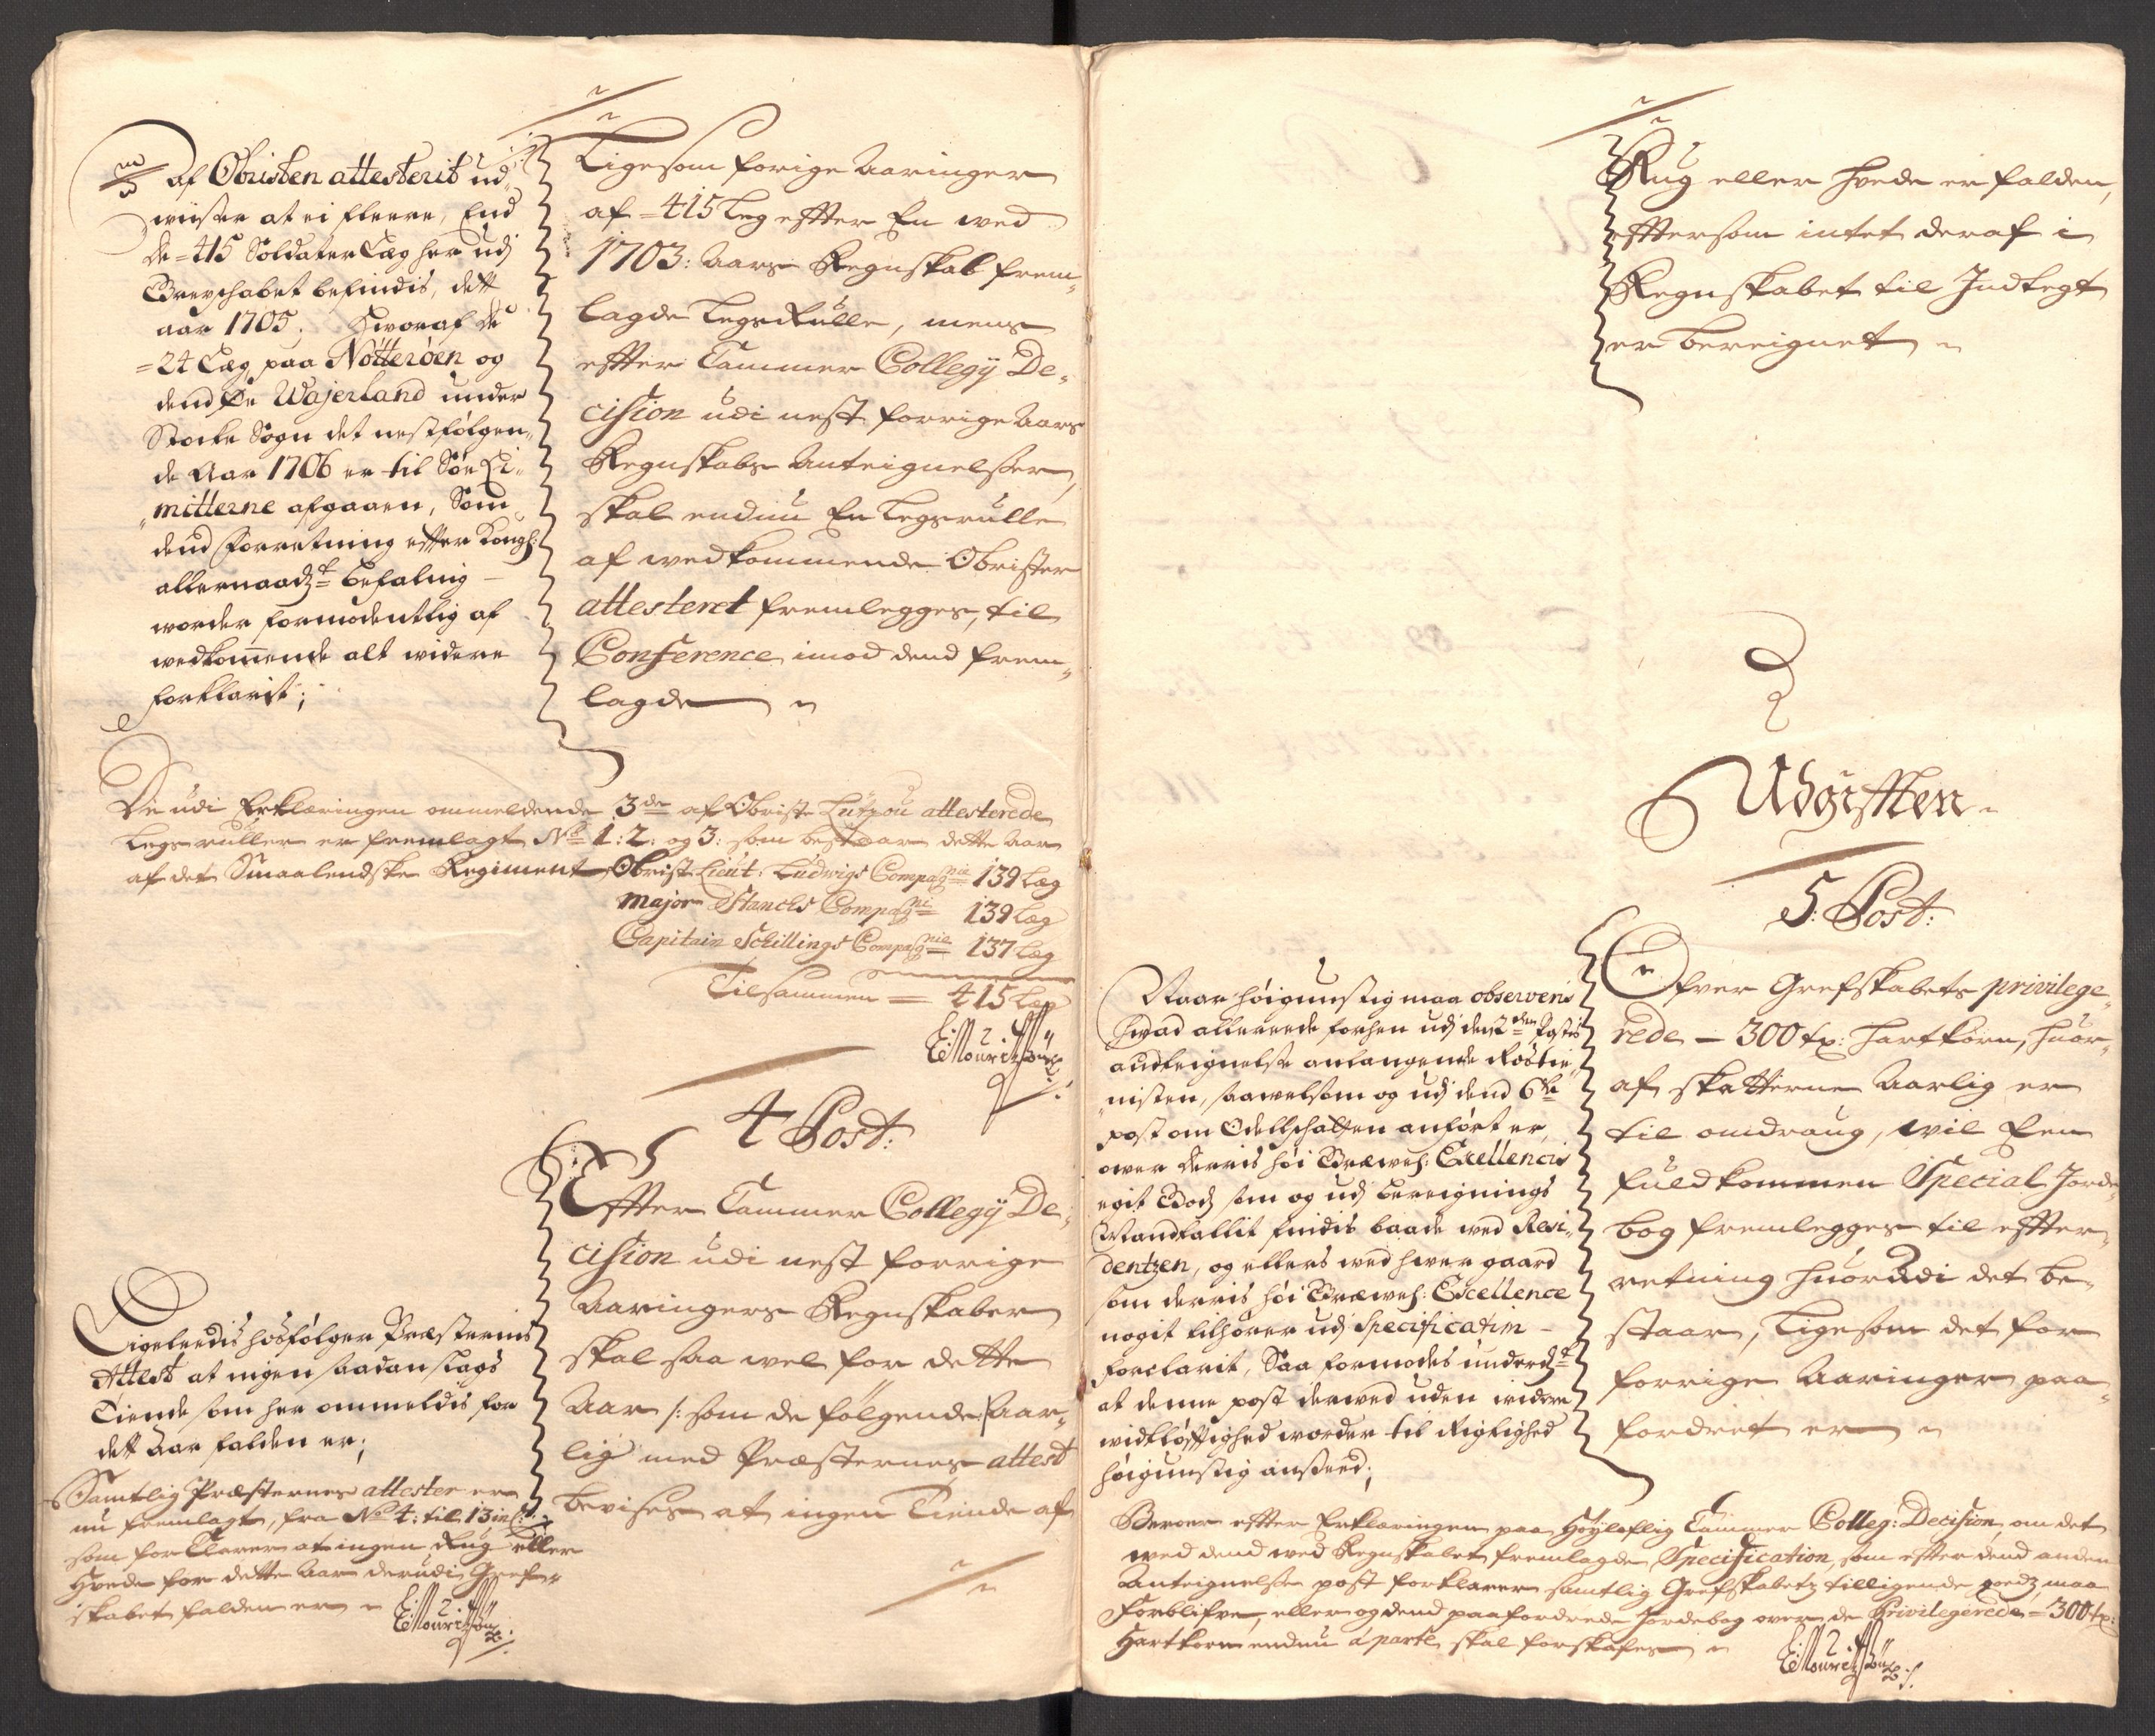 af Obristen attesterit ud
wiiser at ei fleere, End
de = 415 Soldater Læg her udj
Grevschabet befindis, dett
aar 1705. Hworaf de
= 24 Læg paa Nötteröen og
dend Øe Wajerland under
Stocke Sogn det nestfølgen-
de Aar 1706 er til Söe Li-
mitterne afgaaen, Som
dend forretning efter Kongl:
allernaad: befaling
worder formodentlig af
wedkommende alt widere
forklarit;
Ligesom forige Aaringer
af = 415 Leg effter En wed
1703: Aars Regnskab frem-
lagde LegsRulle, mens
effter Cammer Collegÿ De-
cision udi nest forrige Aars
Regnskabs Anteignelser,
skal endnu En Legsrulle
af wedkommende Obrister
attesteret fremlegges, til
Conference imod dend frem-
lagde
De udi Erklæringen ommeldende 3de af Obrist Lützou attesterede
Legs ruller er fremlagt No 1: 2: og 3: som bestaar dette Aar
af det Smaalendske Regiment, Obrist Lieut: Ludwigs Compagnie 139 Læg
Major Stancks Compagni 139 Læg
Capitain Schillings Compagnie 137 Læg
Tilsammen = 415 Læg
4 Post:
Effter Cammer Collegÿ De-
cision udi nest forrige
Aaringers Regnskaber
skal saa wel for dette
Aar /: som de følgende :/ Aar-
lig med Præsternes attest
bevises at ingen Tiende af
Ligeleedis hosfølger Præsternis
Attest at ingen saadan slags
Tiende som her ommeldis for
dett Aar falden er;
Samtlig Præsternes attester er
nu fremlagt, fra No 4: til 13 incl:
som forklarer at ingen Rug eller
Hvede for dette Aar derudi Gref-
skabet falden er
Rug eller Hvede er falden,
efftersom intet deraf i
Regnskabet til Indtegt
er bereignet
Udgifften
5: Post:
Ofver Grefskabets privilege-
rede - 300 tr: Hartkorn, huor-
af skatterne Aarlig er
til omdraug, wil Een
fuldkommen Special Jorde-
bog fremlegges til effter-
retning huorudi det be-
staar, Ligesom det for
forrige Aaringer paa-
fordret er
Naar höigunstig maa observeris
hwad allereede forhen udj dend 2den Postes
andteignelse anlangende Rostie-
nisten, saawelsom og udj dend 6te
post om Odellschatten anført er,
over derris höi Grewel: Excellencis
egit Godz som og udj bereignings
Mandtallit findis baade wed Resi-
dentzen, og ellers wed hwer gaard
som derris höi Grewel: Excellence
nogit tilhører udj Specification
forclarit, Saa formodes underd:
at denne post derwed uden widere
widtløfftighed worder til rigtighed
höigunstig anseed;
Beroer effter Erklæringen paa Høÿloflig Cammer Colleg: Decision, om det
wed dend wed Regnskabet fremlagde Specification, som effter dend anden
Anteignelses post forklarer samtlig Grefskabetz tilligende goedz, maa
forblifve, eller og dend paafordrede Jordebog over de Privilegerede = 300 tr:
Hartkorn endnu á parte skal forskafes